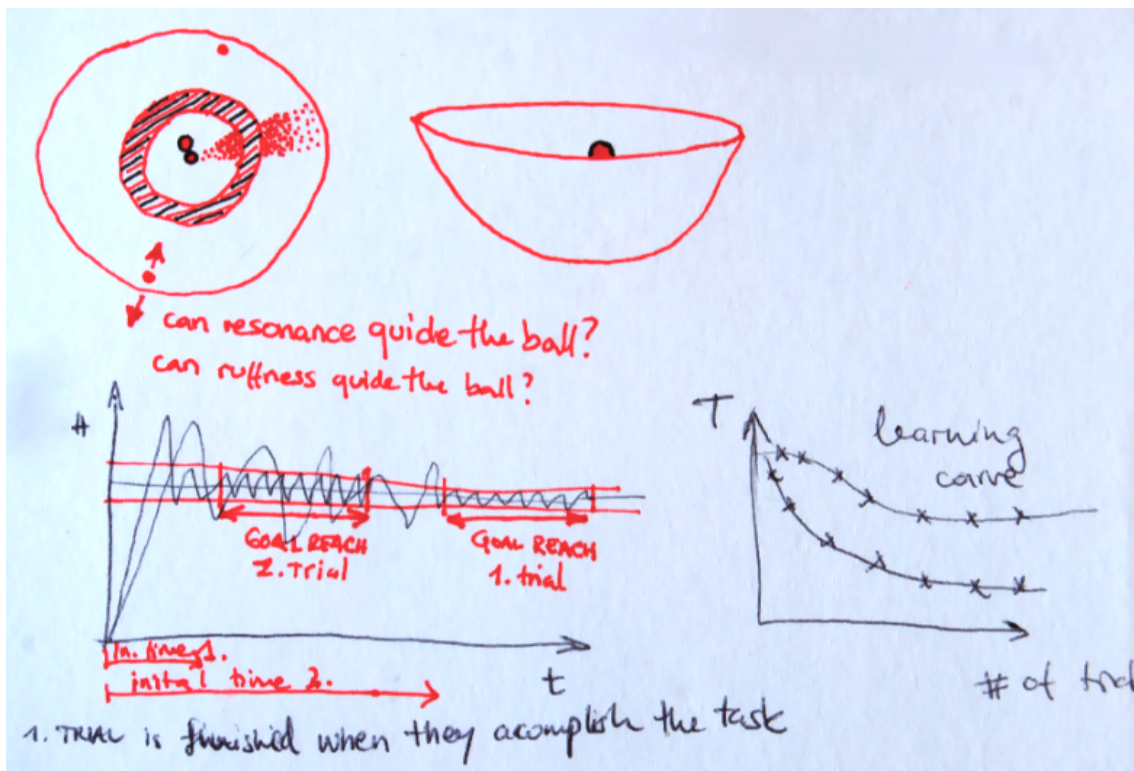 can resonance quide the ball?
can ruffness quide the ball?
T
learning
curve
GOAL REACH
2. Trial
GOAL REACH
1. trial
In. time 1.
initial time 2.
t
# of trial
1. TRIAL is finished when they acomplish the task